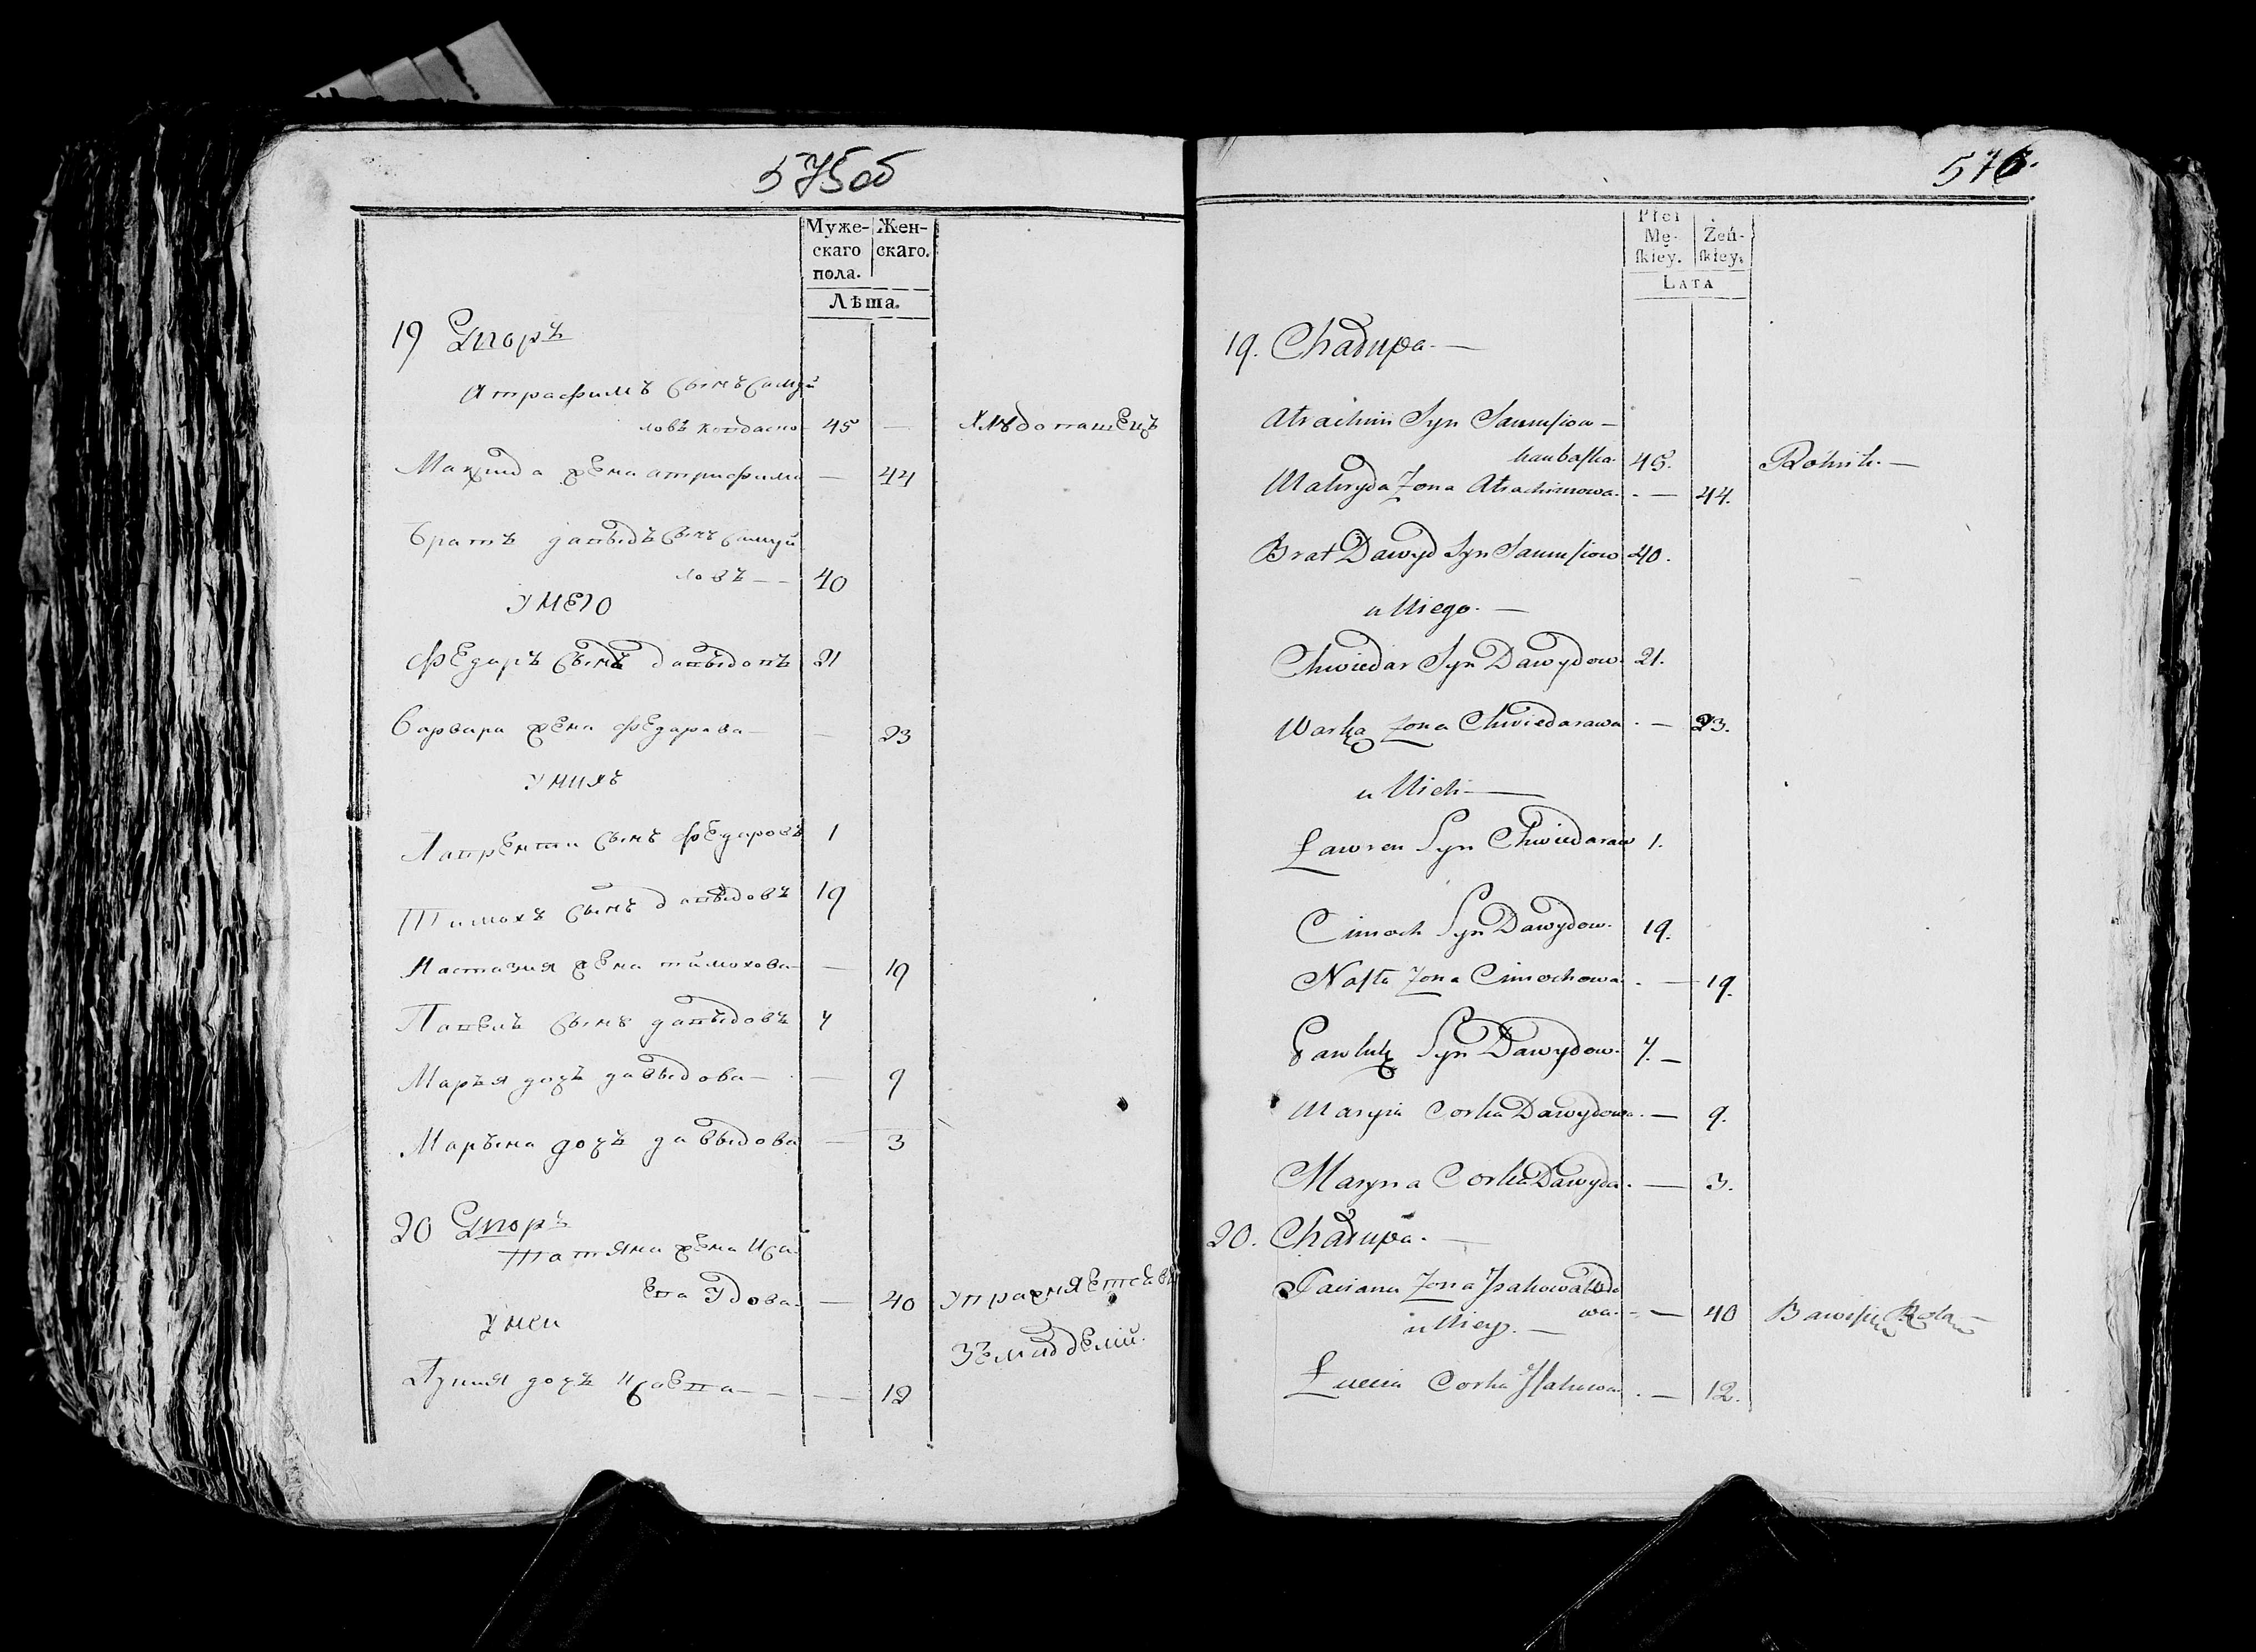 575об
Муже- Жен-
скаго скаго.
пола.
Лѣта.
19 Дворъ
Атрафимъ сынъ Самуй
ловъ Конбаско 45 —
Хлѣбопашецъ
Макрида жена атрафима — 44
братъ давыдъ сынъ самуй
ловъ — — 40
У него
Федаръ сынъ давыдовъ 21
Варвара жена Федарава — — 23
У нихъ
Лаврентий сынъ Федаровъ 1
Тимохъ сынъ давыдовъ 19
Настазия жена тимохова — — 19
Павелъ сынъ давыдовъ 7
Маръя дочъ давыдова — — 9
Марына дочъ давыдова — 3
20 Дворъ
Татяна жена Иса
ева Удова — 40 упражняетса въ
У неи
земледелии.
Луция дочъ Исаева — — — 12
576.
Płci
Mę- Żeń-
skiey. skiey.
Lata
19. Chałupa. —
Atrachim Syn Samusiow —
Kanbaska. 45. Rolnik. —
Makryda Zona Atrachimowa. — 44.
Brat Dawyd Syn Samusiow 40.
u Niego. —
Chwiedar Syn Dawydow. 21.
Warka Zona Chwiedarawa. — 23.
u Nich —
Ławren Syn Chwiedaraw 1.
Cimoch Syn Dawydow. 19.
Nasta Zona Cimochowa. — 19.
Pawluk Syn Dawydow. 7. —
Maryia Corka Dawydowa. — 9.
Maryna Corka Dawyda. — 3.
20. Chałupa. —
Taciana Zona Isakowa Wdo
wa. — 40 Bawi się Rolą —
u Niey. —
Łucia Corka Isakowa. — 12.